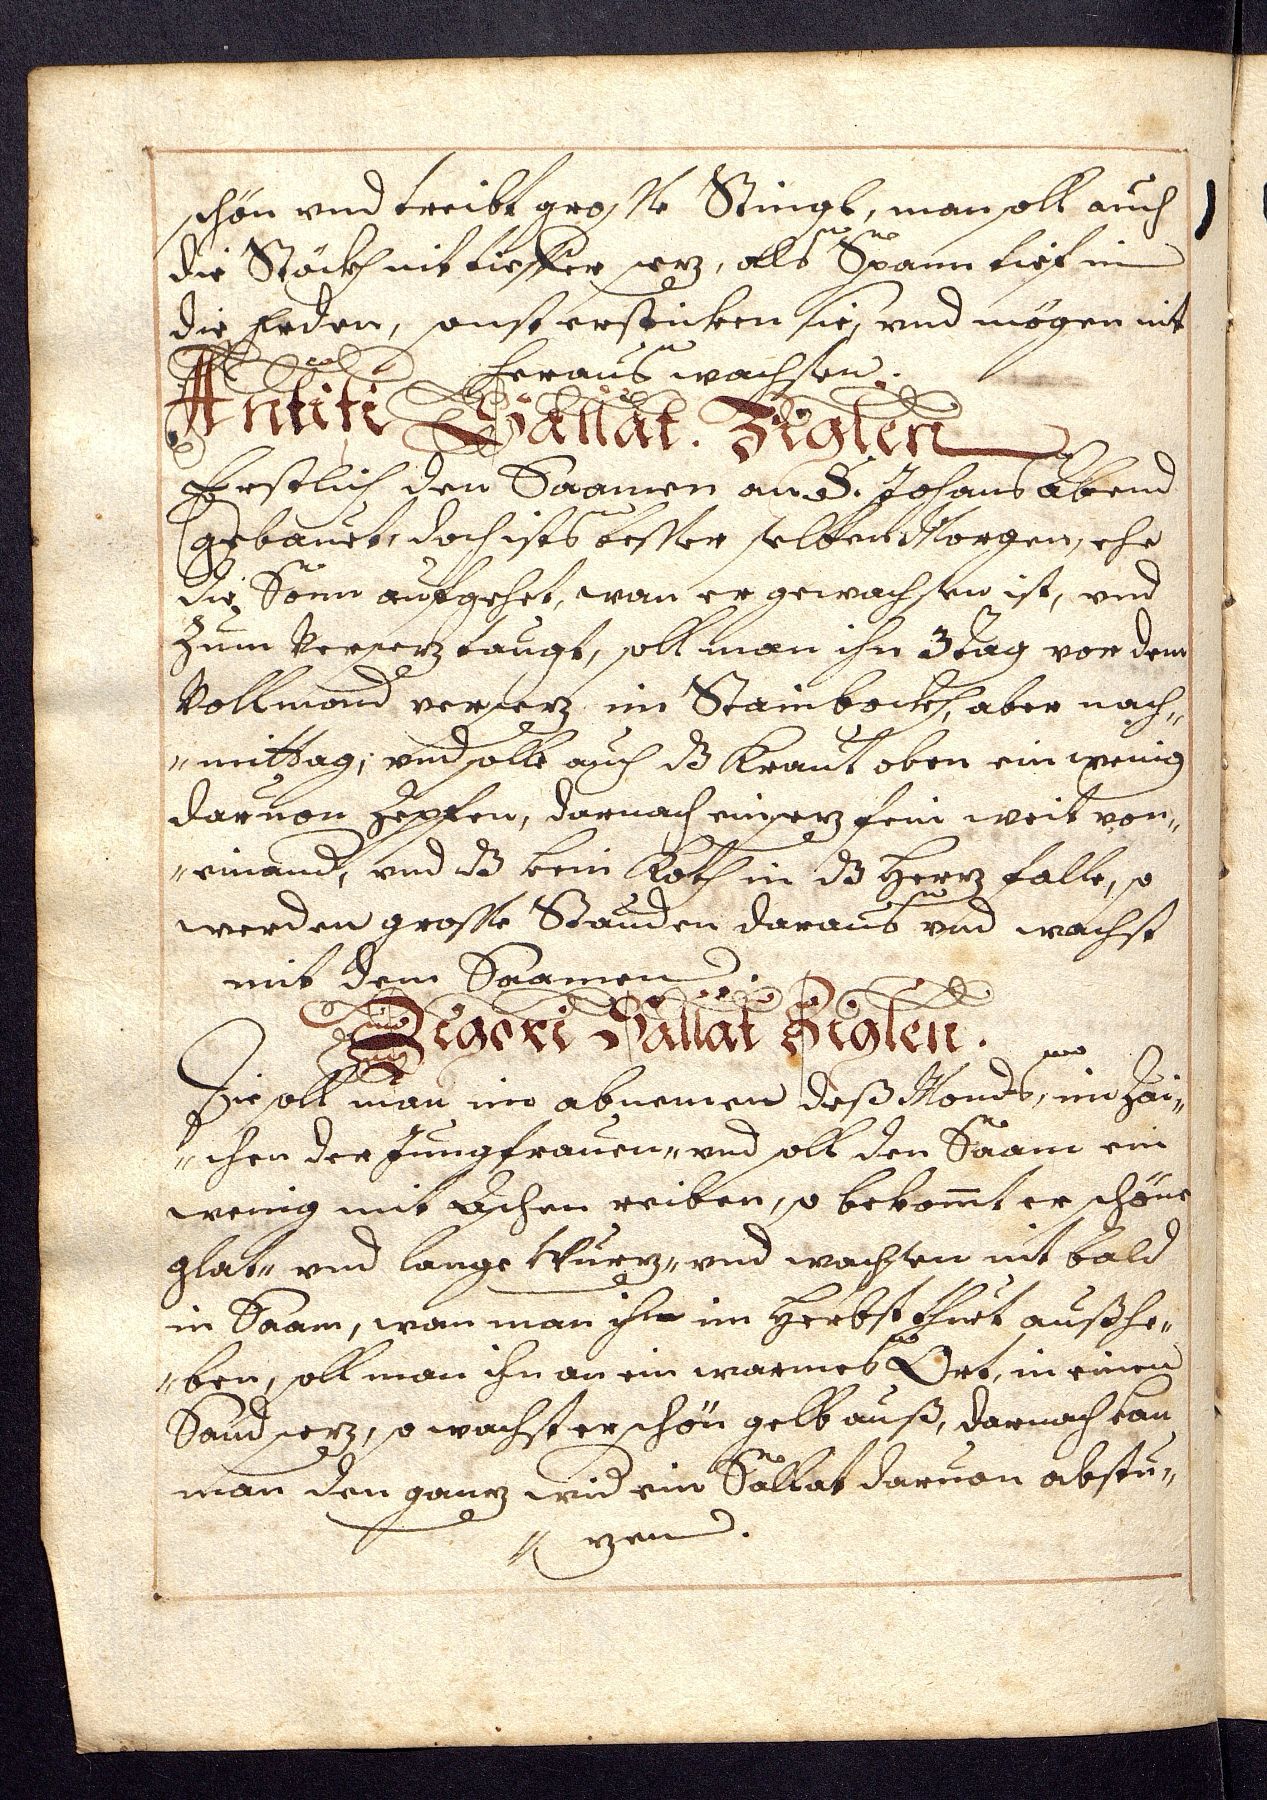 schön vnd treibt grosse Stingl, man soll auch
die Stöckh nit tieffer sezn, alls Spann tief in
die Erden, sonst ersticken sie, vnd mögen nit
heraus wachsen.
Antiti Sallat. Ziglen
Erstlich den Saamen an S. Johans Abend
gebauet, doch ists besser selben Morgen, ehe
die Sonn aufgehet, wan er gewachsen ist, vnd
zum versezn taugt, soll man ihn 3 tag vor dem
Vollmond versezn im Stainbockh, aber nach„
„mittag; vnd solle auch dz Kraut oben ein wenig
daruon zepfen, darnach einsezn fein weit von„
„einand, vnd dz kein Koth in dz Herz falle, so
werden grosse Stauden daraus vnd wachst
mit dem Saamen.
Zigori Sallat Ziglen.
Die soll man im abnemen deß Monds, im Zai„
„chen der Jungfrauen„ vnd soll den Saam ein
wenig mit Aschen reiben, so bekomt er schöne
glat„ vnd lange Wurz„ vnd wachsen nit bald
in Saam, wan man ihn im Herbst thuet außhe„
„ben, soll man ihn an ein warmes Ort, in einen
Sand sezn, so wachst er schön gelb auß, darnach kan
man den ganzn wid ein Sallat daruon abstu„
„zen.